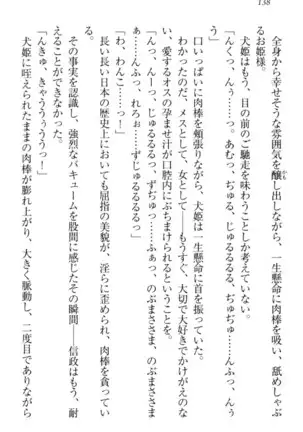 138
全身から幸せそうな雰囲気を醸し出しながら、一生懸命に肉棒を吸い、舐めしゃぶ
るお姫様。
犬姫はもう、目の前のご馳走を味わうことしか考えていない。
「んくっ、んぅ……っ。あむっ、ぢゅる、じゅるるるる、ぢゅぢゅ……んふぅっ、
ん、んーっ、じゅるるるっ、ずぢゅっ……ふぁっ、のぶまささま、のぶまささま
ぁ……んふっ、れろぉ……ずじゅるるるるっ」
口いっぱいに肉棒を頬張りながら、犬姫は一生懸命に吸いついてくる。
わかったのだ。メスとして、女として――もうすぐ、大切で大好きでかけがえのな
い、愛するオスの孕ませ汁が口腔内にぶちまけられるということを。
「わ、わんこ……っ!」
長い長い日本の歴史上においても屈指の美貌が、淫らに歪められ、肉棒を貪ってい
る。
その事実を認識し、強烈なバキュームを股間に感じたその瞬間――信政はもう、耐
えることができなかった。
「んきゅ、きゃうううぅうっ!」
犬姫に咥えられたままの肉棒が膨れ上がり、大きく脈動し、二度目でありながら